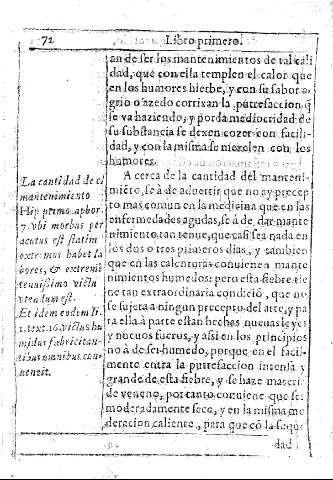 72 Libro primero.
an de ser los mantenimientos de tal cali
dad, que con ella templen el calor que
en los humores hierbe, y con su sabor a
grio o azedo corrixan la putrefaccion q̃
se va haziendo, y por la mediocridad de
su substancia se dexen cozer con facili-
dad, y con la misma se mezclen con los
humores.
A cerca de la cantidad del manteni-
miẽto, se à de aduertir que no ay precep
to mas comun en la medicina que en las
enfermedades agudas, se à de dar mante
nimiento tan tenue, que casi sea nada en
los dos o tres primeros dias, y tambien
que en las calenturas conuienen mante
nimientos humedos: pero esta fiebre tie
ne tan extraordinaria condiciõ, que no
se sujeta a ningun precepto del arte, y pa
ra ella à parte estan hechas nueuas leyes
y nueuos fueros, y assi en los principios
no à de ser humedo, porque en el facil-
mente entra la putrefaccion intensa y
grande de esta fiebre, y se haze materia
de veneno, por tanto conuiene que sea
moderadamente seco, y en la misma mo
deracion caliente, para que cõ la seque
dad
La cantidad de el
mantenimiento
Hip primo aphor.
7. vbi morbus per
acutus est statim
extremos habet la
bores, & extremè
tenuissimo victu
vtendum est.
Et idem eodem li.
1. text. 16. victus hu
midus febricitan-
tibus omnibus con
uenit.